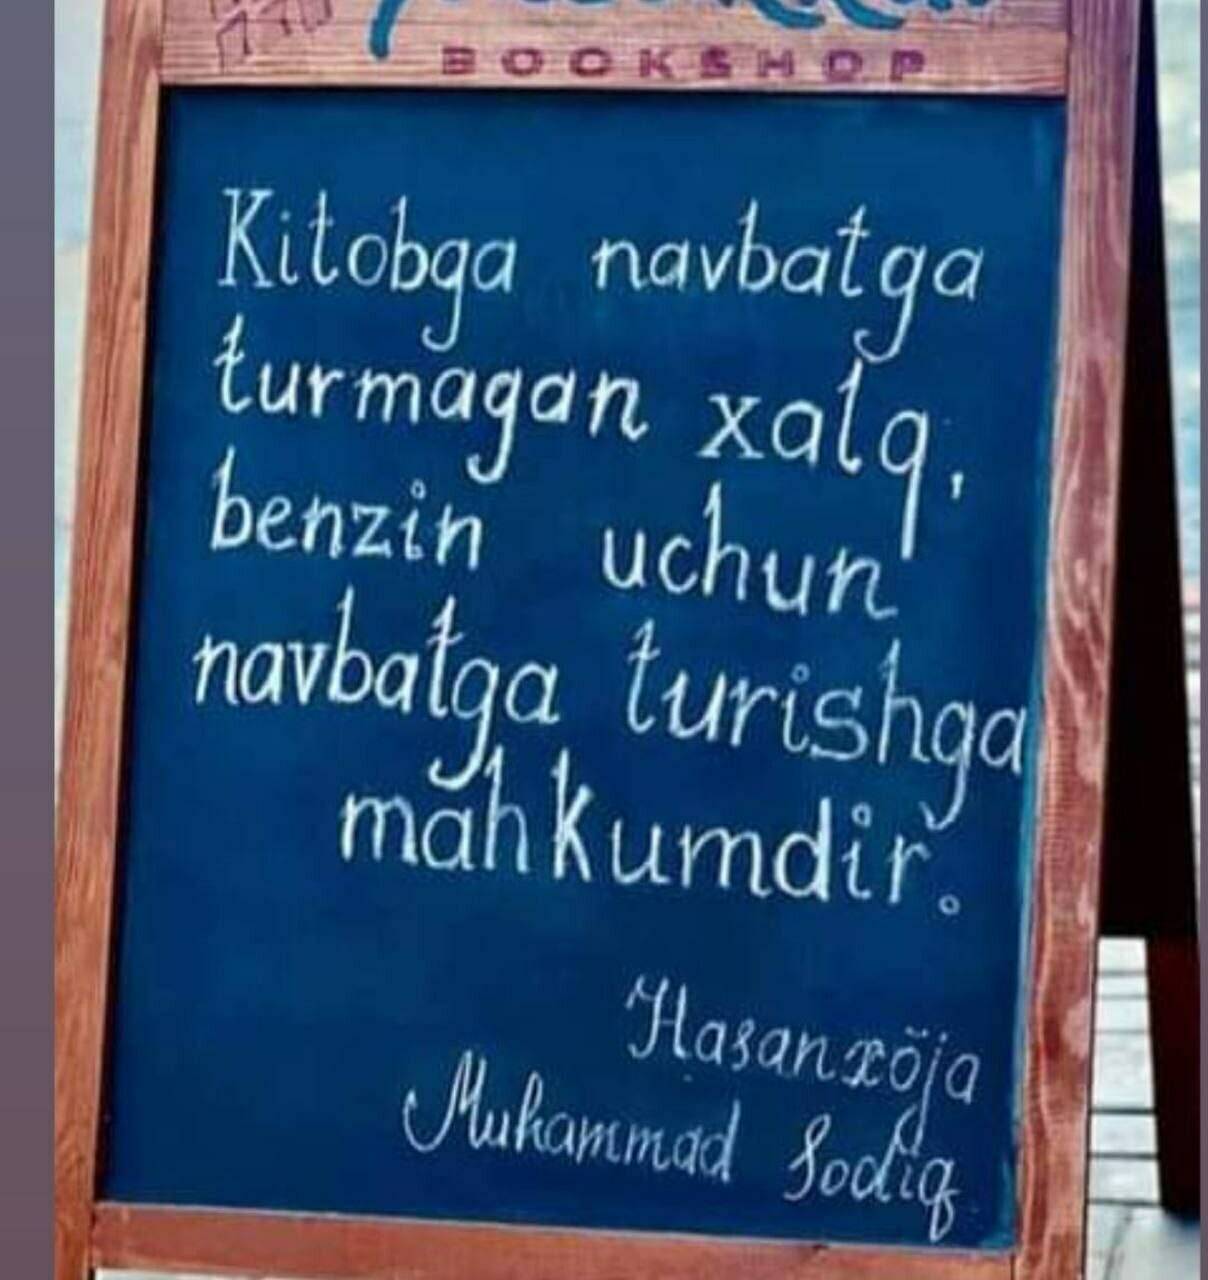 BOOKSHOP
Kitobga navbatga
turmagan xalq,
benzin uchun
navbatga turishga
mahkumdir.
Hasanxõja
Muhammad Sodiq